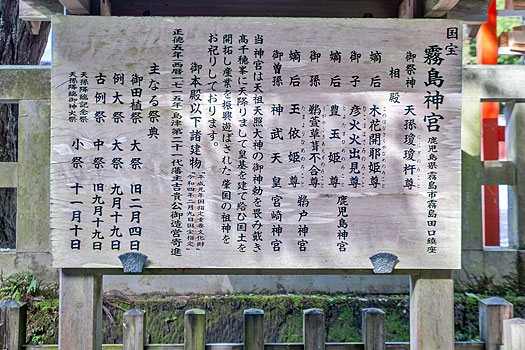 国宝
霧島神宮 鹿児島県霧島市霧島田口鎮座
御祭神 天孫瓊瓊杵尊
相殿
嫡后 木花開耶姫尊
御子 彦火火出見尊 鹿児島神宮
嫡后 豊玉姫尊
御孫 鵜萱草葺不合尊 鵜戸神宮
嫡后 玉依姫尊
御曽孫 神武天皇 宮崎神宮
当神宮は天祖天照大神の御神勅を畏み戴き
高千穂峯に天降りまして皇基を建て給ひ国土を
開拓し産業を振興遊ばされた肇国の祖神を
お祀りしております。
御本殿以下諸建物 「平成元年国指定重要文化財」「令和四年二月九日国宝指定」
正徳五年西暦一七一五年島津第二十一代藩主吉貴公御造営寄進
主なる祭典
御田植祭 大祭 旧二月四日
例大祭 大祭 九月十九日
古例祭 中祭 旧九月十九日
天孫降臨記念祭
天孫降臨御神火祭 小祭 十一月十日